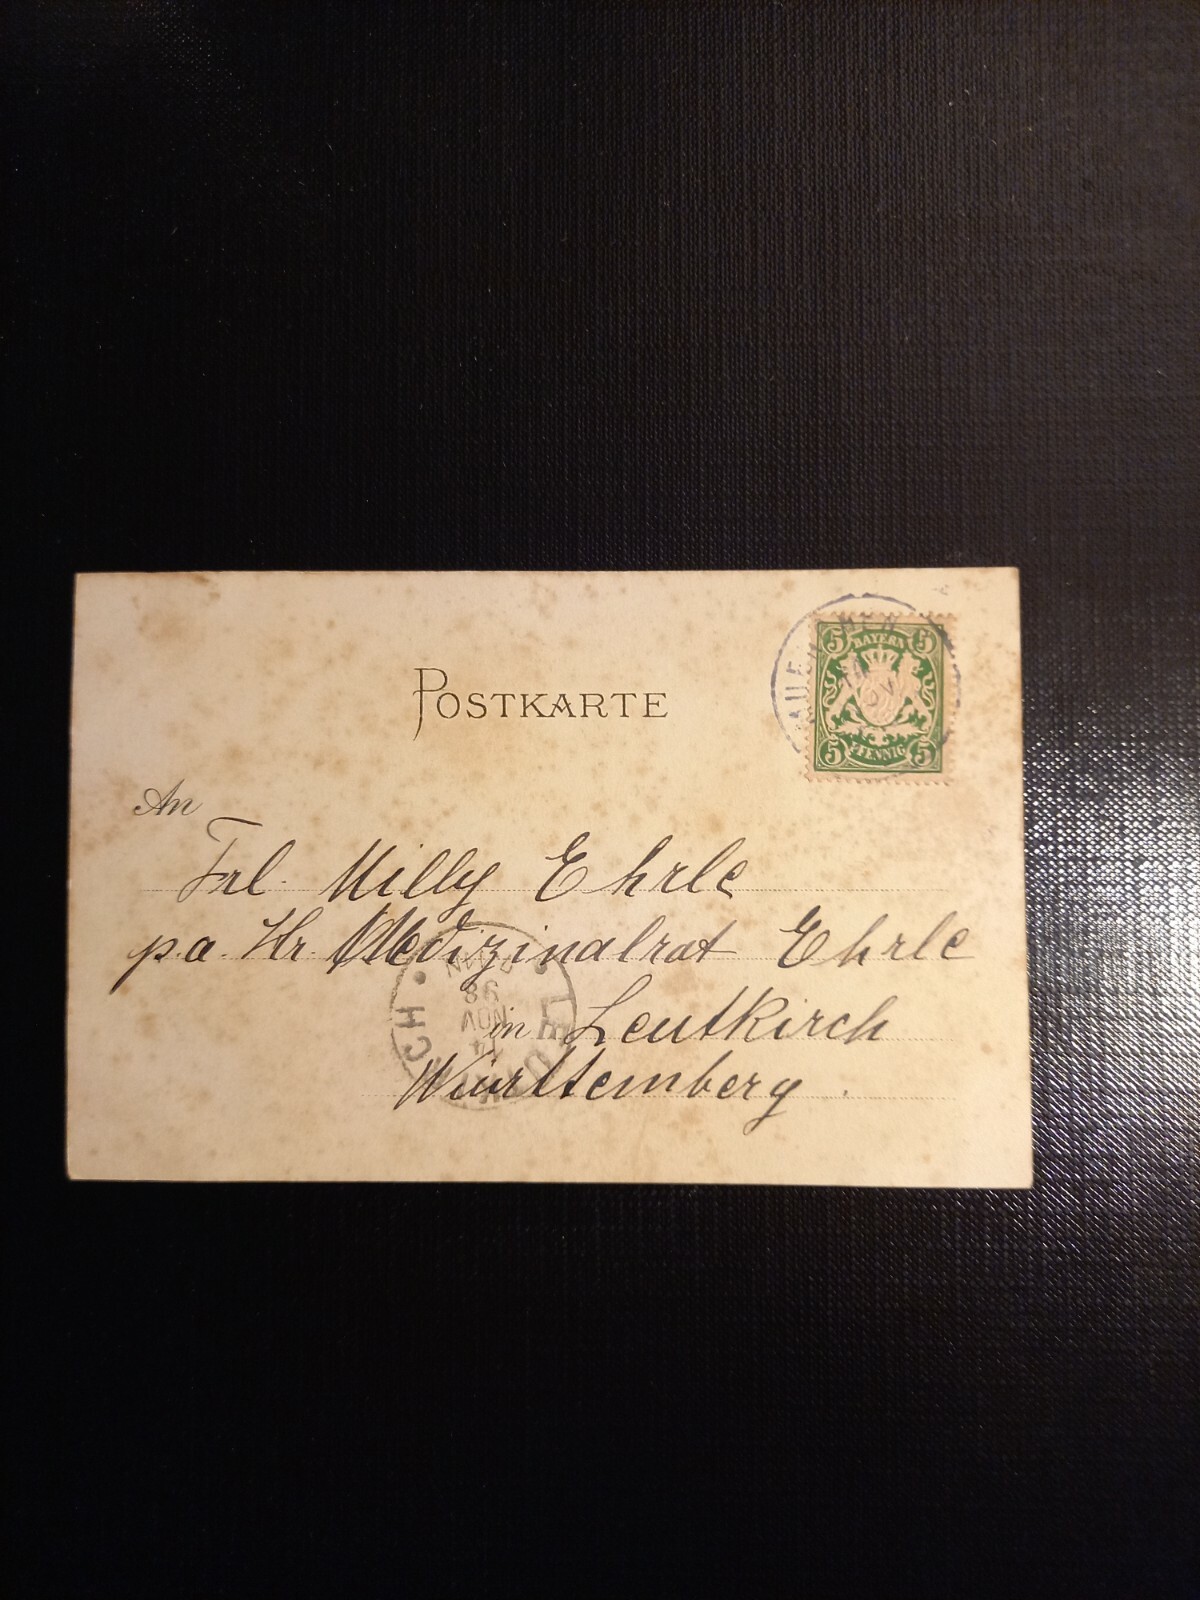 POSTKARTE
5 BAYERN 5
5 PFENNIG 5
An
Frl. Milly Ehrle
p.a. Hr. Medizinalrat Ehrle
in Leutkirch
Württemberg.
98
NOV
14